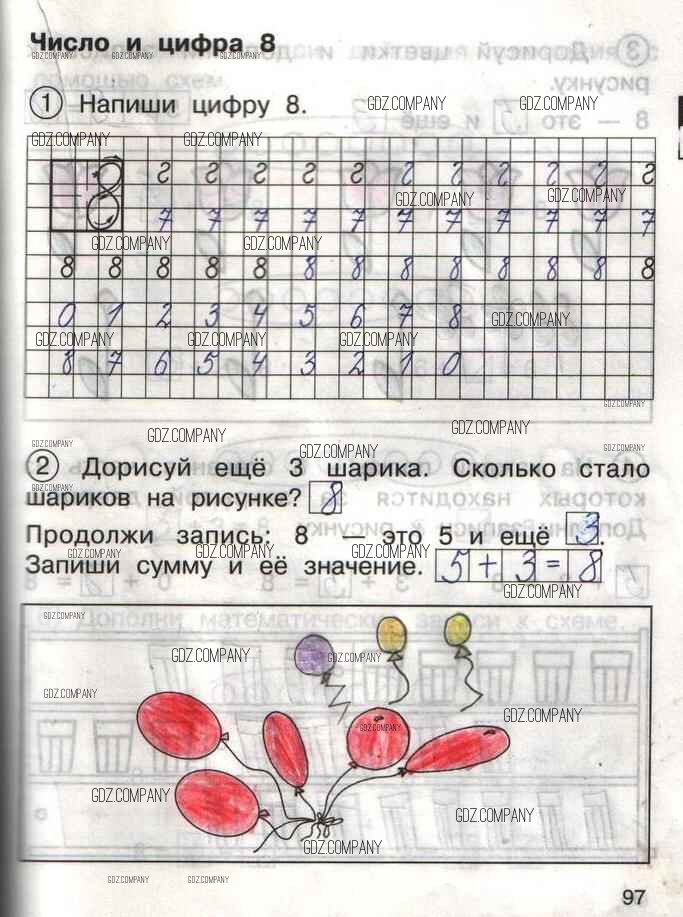 Число и цифра 8
1 Напиши цифру 8.
8 2 2 2 2 2 2 2 2 2 2 2
7 7 7 7 7 7 7 7 7 7 7
8 8 8 8 8 8 8 8 8 8 8 8 8
0 1 2 3 4 5 6 7 8
8 7 6 5 4 3 2 1 0
2 Дорисуй ещё 3 шарика. Сколько стало
шариков на рисунке? 8
Продолжи запись: 8 — это 5 и ещё 3.
Запиши сумму и её значение. 5 + 3 = 8
GDZ.COMPANY
97